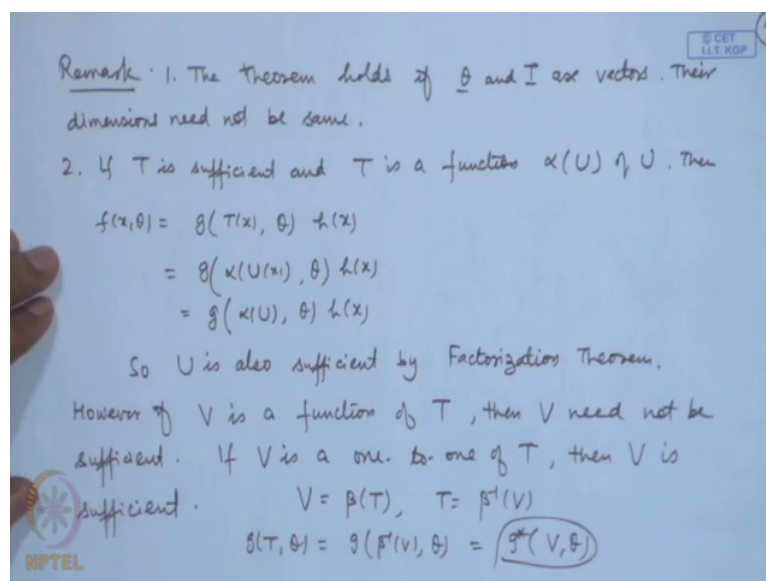 © CET
I.I.T. KGP
Remark : 1. The theorem holds if θ and T are vectors. Their
dimensions need not be same.
2. If T is sufficient and T is a function α(U) of U. Then
f(x,θ) = g( T(x), θ) h(x)
= g( α(U(x)), θ) h(x)
= g( α(U), θ) h(x)
So U is also sufficient by Factorization Theorem.
However if V is a function of T, then V need not be
sufficient. If V is a one-to-one of T, then V is
sufficient. V = β(T), T = β⁻¹(V)
g(T, θ) = g(β⁻¹(V), θ) = g*(V, θ)
NPTEL